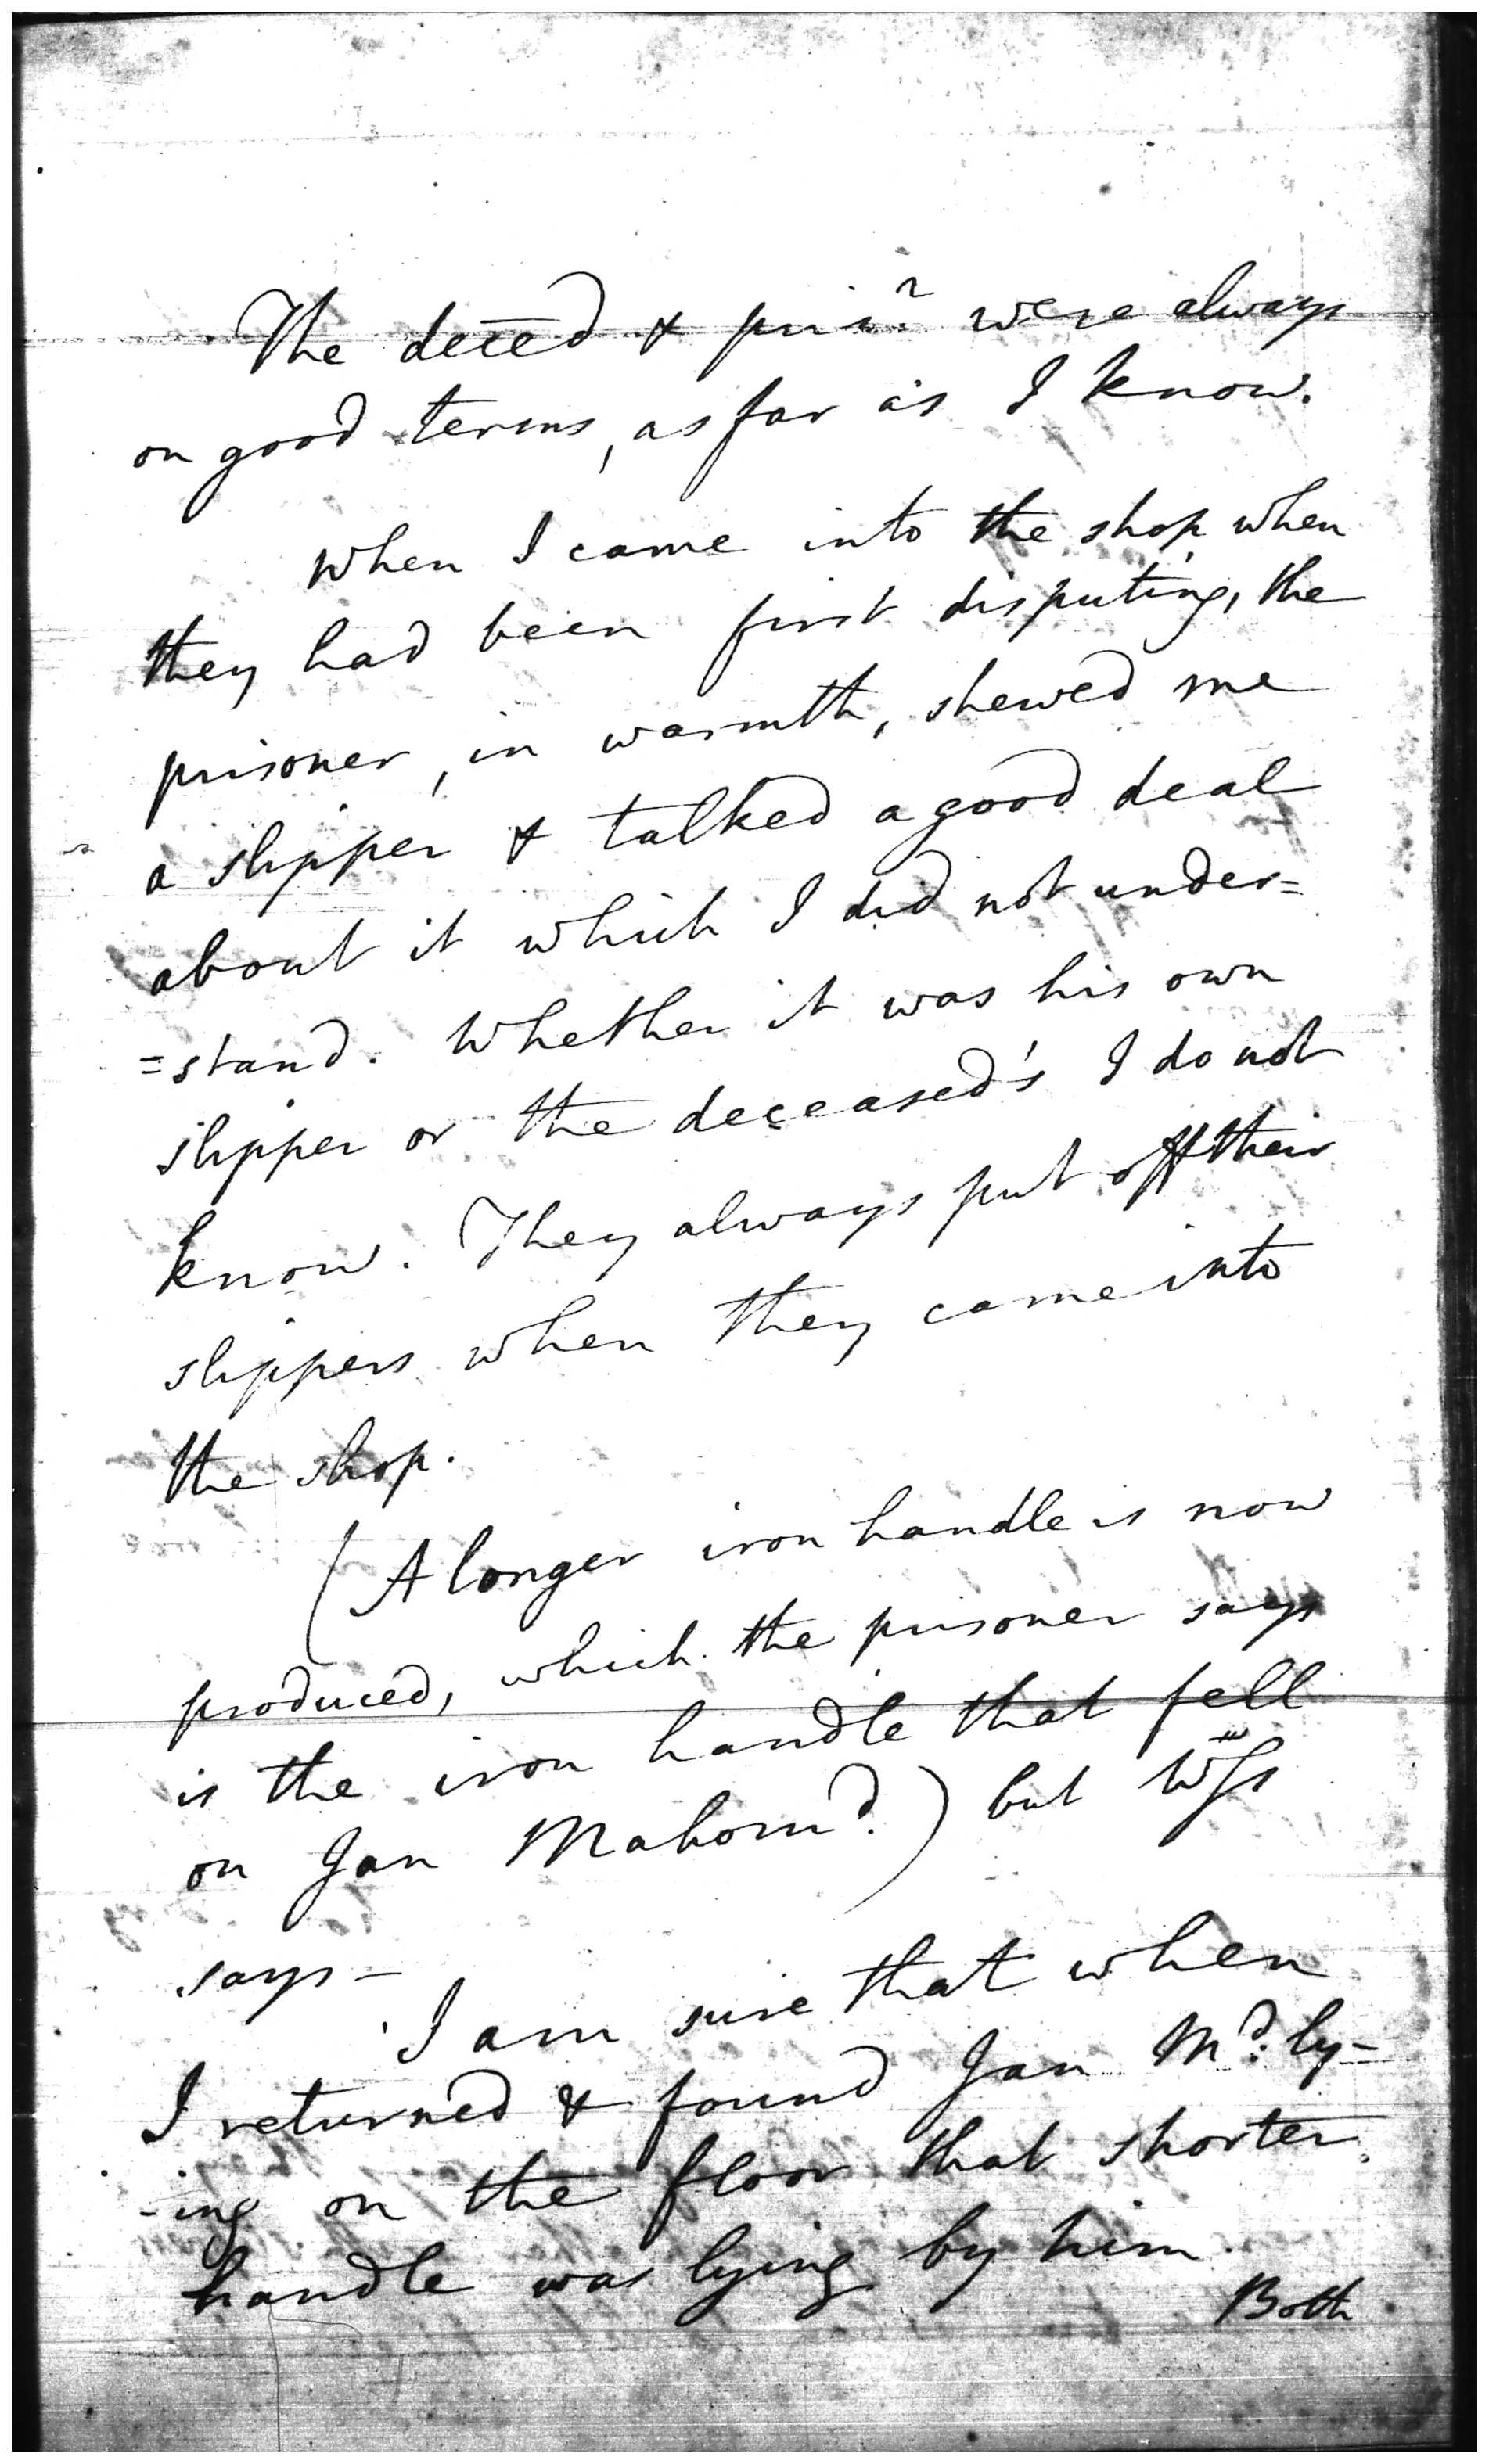 The deced & prisr were always
on good terms, as far as I know.
When I came into the shop when
they had been first disputing, the
prisoner, in warmth, shewed me
a slipper & talked a good deal
about it which I did not under=
=stand. Whether it was his own
slipper or the deceased's I do not
know. They always put off their
slippers when they came into
the shop.
(A longer iron handle is now
produced, which the prisoner says
is the iron handle that fell
on Jan Mahomd.) but
says -
I am sure that when
I returned & found Jan Md. ly-
-ing on the floor that shorter
handle was lying by him.
Both